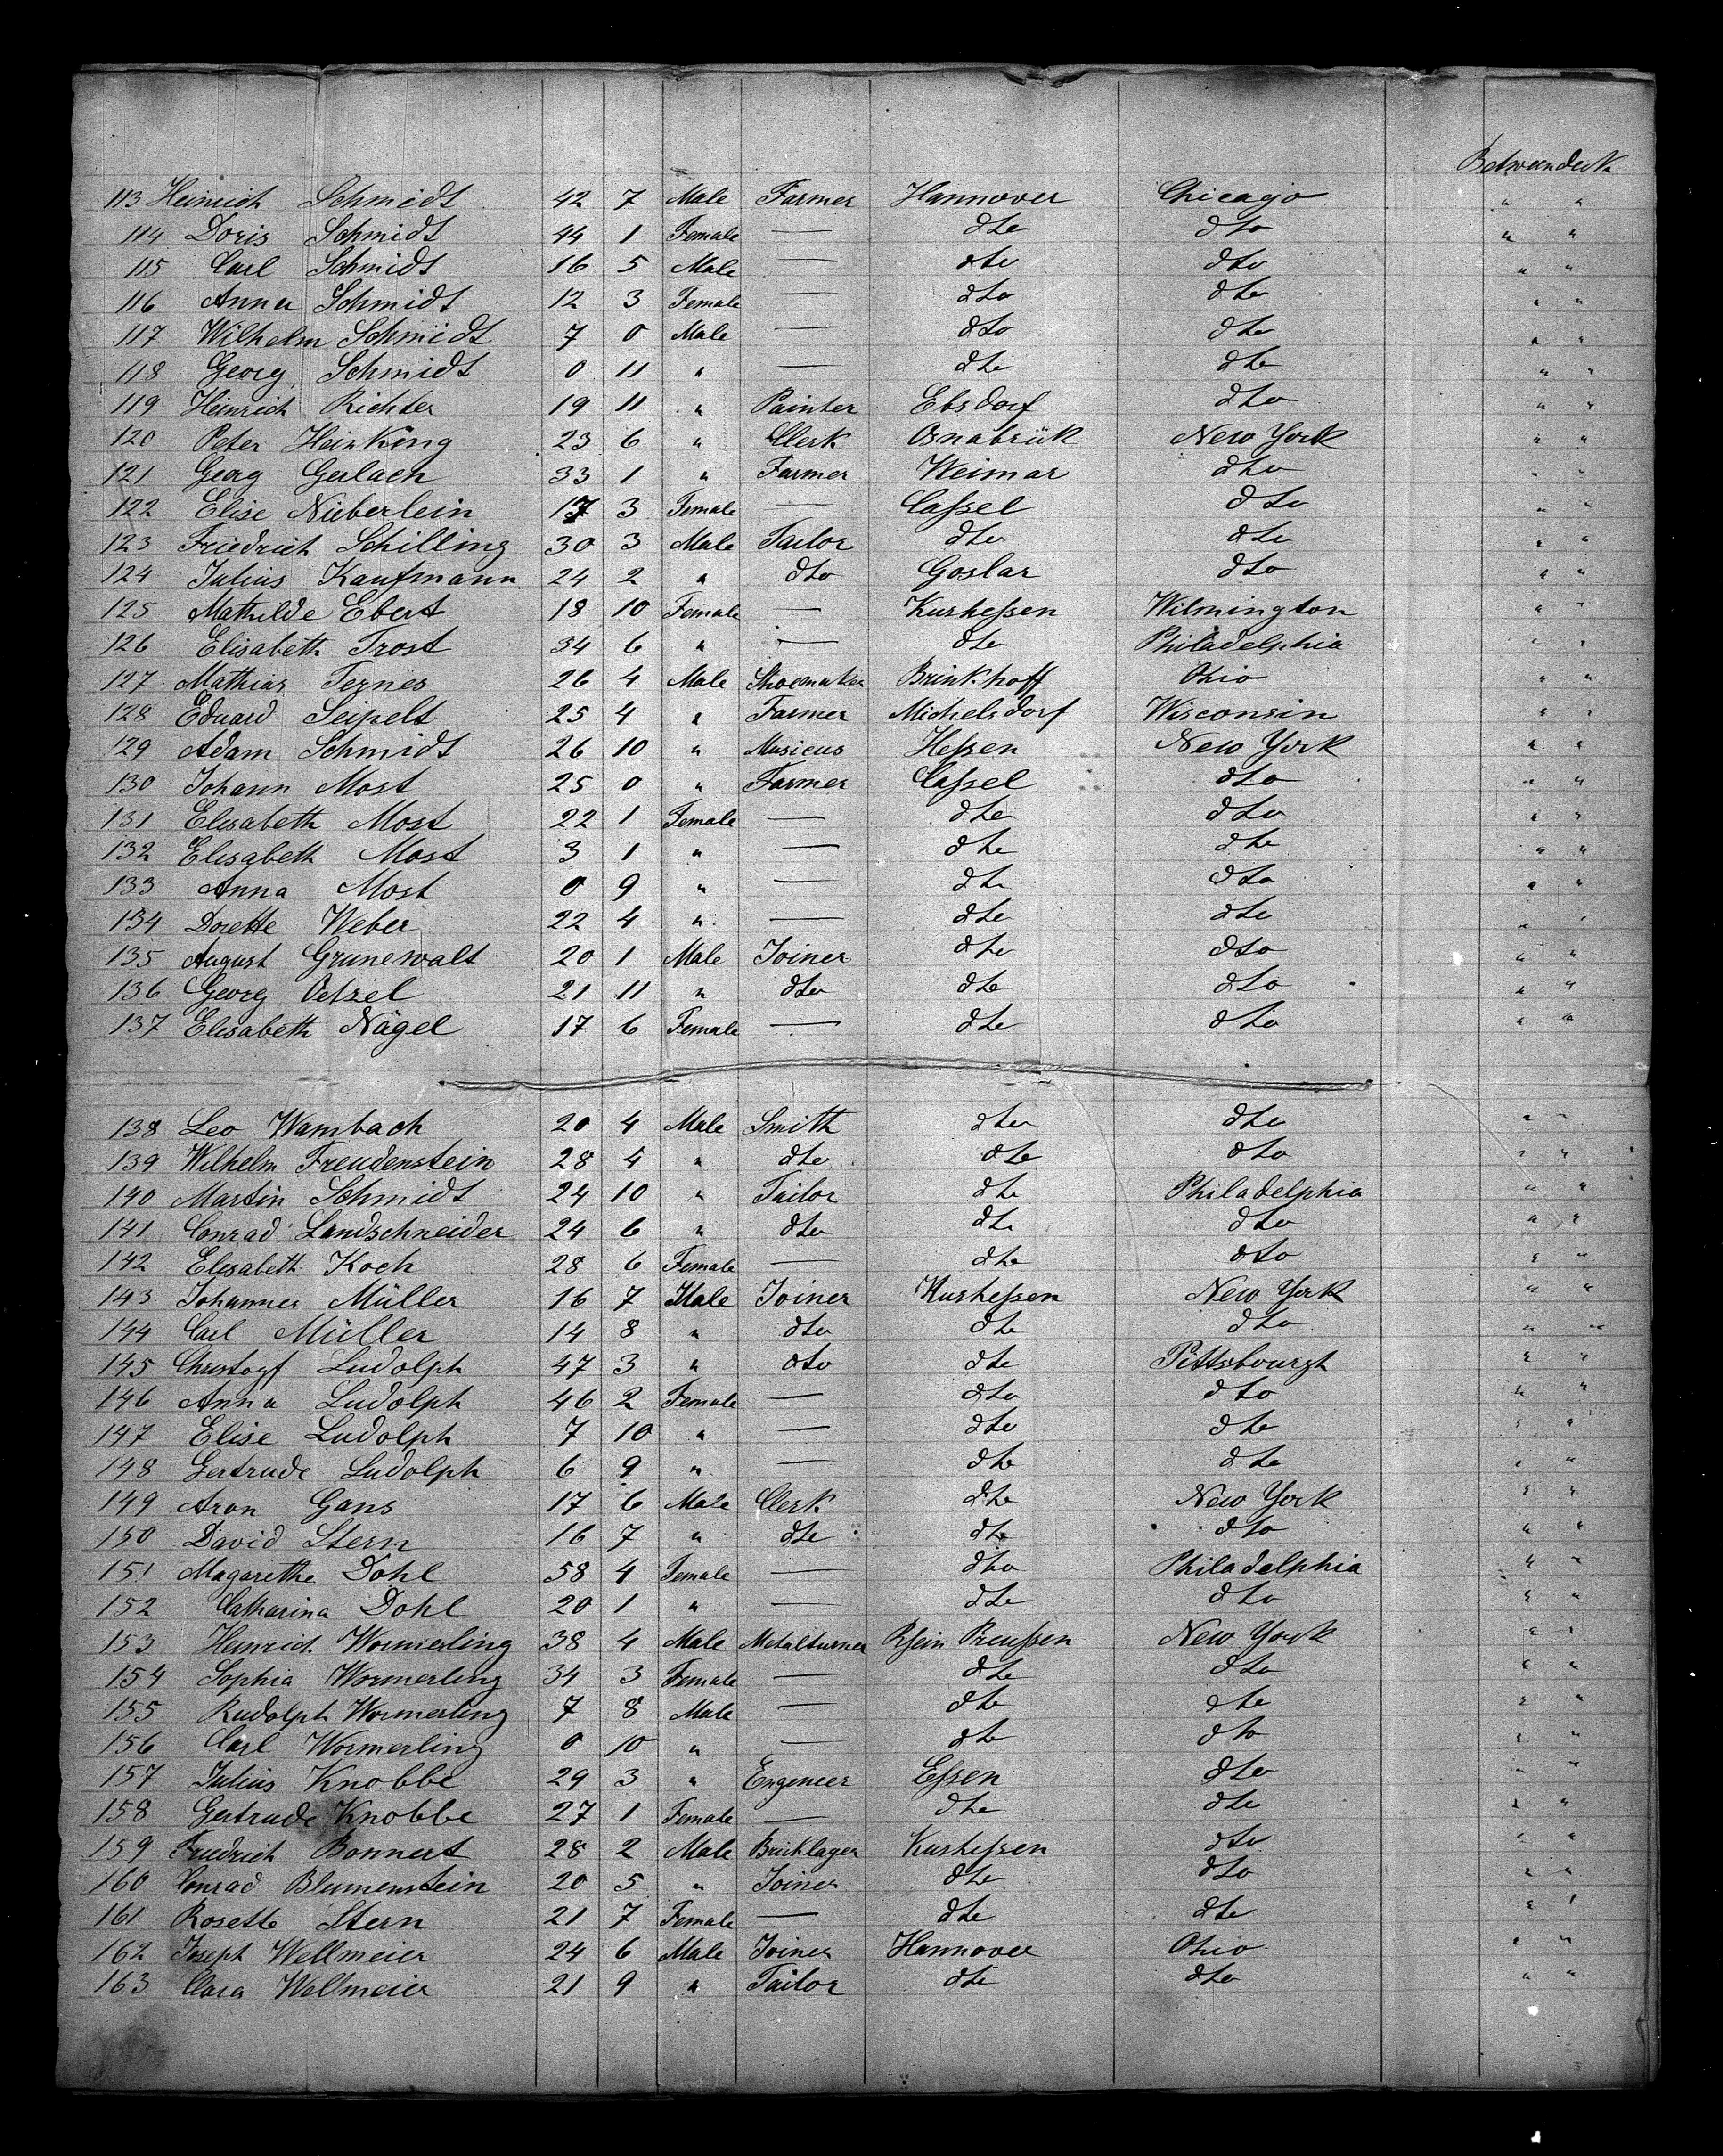 Betweendeck
113 Heinrich Schmidt 42 7 Male Farmer Hannover Chicago " "
114 Doris Schmidt 44 1 Female — dto dto " "
115 Carl Schmidt 16 5 Male — dto dto " "
116 Anna Schmidt 12 3 Female — dto dto " "
117 Wilhelm Schmidt 7 0 Male — dto dto " "
118 Georg Schmidt 0 11 " — dto dto " "
119 Heinrich Richter 19 11 " Painter Ebsdorf dto " "
120 Peter Heinking 23 6 " Clerk Osnabrük New York " "
121 Georg Gerlach 33 1 " Farmer Weimar dto " "
122 Elise Nieberlein 17 3 Female — Caſsel dto " "
123 Friedrich Schilling 30 3 Male Tailor dto dto " "
124 Julius Kaufmann 24 2 " dto Goslar dto " "
125 Mathilde Ebert 18 10 Female — Kurheſsen Wilmington " "
126 Elisabeth Trost 34 6 " — dto Philadelphia " "
127 Mathias Ternes 26 4 Male Shoemaker Brinkhoff Ohio " "
128 Eduard Seipelt 25 4 " Farmer Michelsdorf Wisconsin " "
129 Adam Schmidt 26 10 " Musicus Heſsen New York " "
130 Johann Most 25 0 " Farmer Caſsel dto " "
131 Elisabeth Most 22 1 Female — dto dto " "
132 Elisabeth Most 3 1 " — dto dto " "
133 Anna Most 0 9 " — dto dto " "
134 Dorette Weber 22 4 " — dto dto " "
135 August Grunewalt 20 1 Male Joiner dto dto " "
136 Georg Oetzel 21 11 " dto dto dto " "
137 Elisabeth Nägel 17 6 Female — dto dto " "
138 Leo Wambach 20 4 Male Smith dto dto " "
139 Wilhelm Freudenstein 28 4 " dto dto dto " "
140 Martin Schmidt 24 10 " Tailor dto Philadelphia " "
141 Conrad Landschneider 24 6 " dto dto dto " "
142 Elisabeth Koch 28 6 Female — dto dto " "
143 Johannes Müller 16 7 Male Joiner Kurheſsen New York " "
144 Carl Müller 14 8 " dto dto dto " "
145 Christopf Ludolph 47 3 " dto dto Pittsbourgh " "
146 Anna Ludolph 46 2 Female — dto dto " "
147 Elise Ludolph 7 10 " — dto dto " "
148 Gertrude Ludolph 6 9 " — dto dto " "
149 Aron Gans 17 6 Male Clerk dto New York " "
150 David Stern 16 7 " dto dto dto " "
151 Magarethe Dohl 58 4 Female — dto Philadelphia " "
152 Catharina Dohl 20 1 " — dto dto " "
153 Heinrich Wormerling 38 4 Male Metalturner Rhein Preuſsen New York " "
154 Sophia Wormerling 34 3 Female — dto dto " "
155 Rudolph Wormerling 7 8 Male — dto dto " "
156 Carl Wormerling 0 10 " — dto dto " "
157 Julius Knobbe 29 3 " Engeneer Eſsen dto " "
158 Gertrude Knobbe 27 1 Female — dto dto " "
159 Friedrich Bonnert 28 2 Male Bricklager Kurheſsen dto " "
160 Conrad Blumenstein 20 5 " Joiner dto dto " "
161 Rosette Stern 21 7 Female — dto dto " "
162 Joseph Wellmeier 24 6 Male Joiner Hannover Ohio " "
163 Clara Wellmeier 21 9 " Tailor dto dto " "